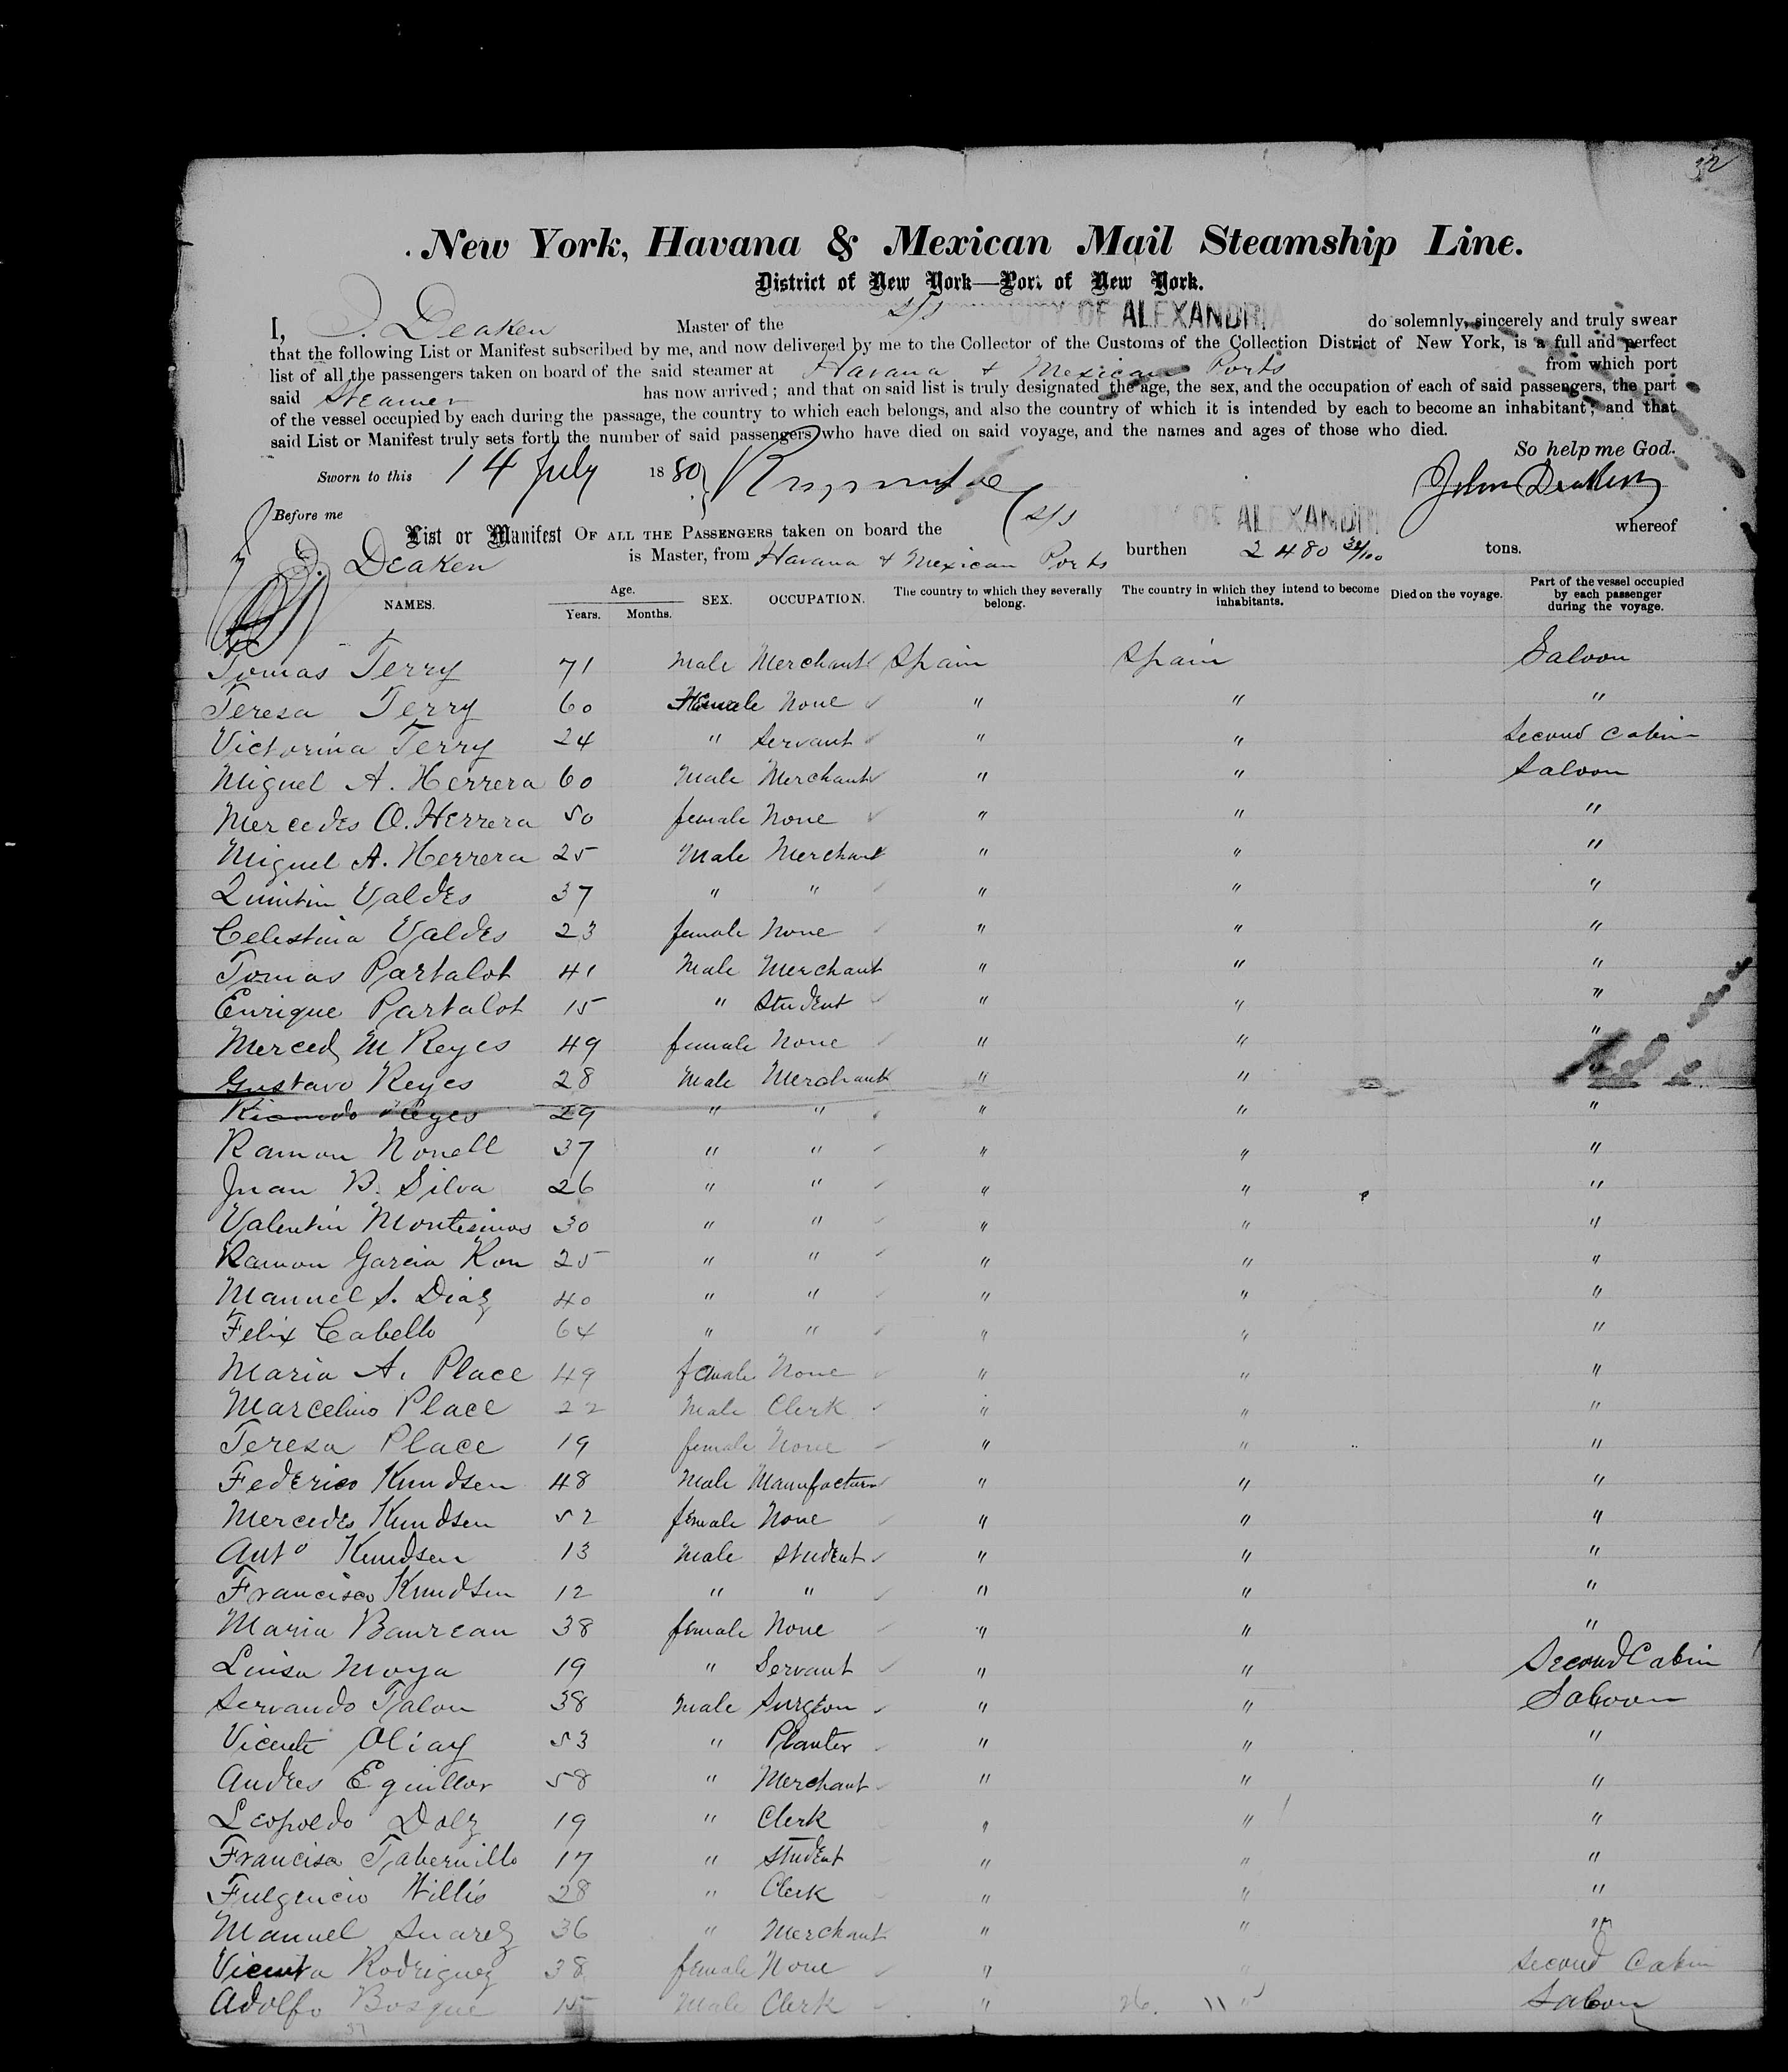 32
New York, Havana & Mexican Mail Steamship Line.
District of New York—Port of New York.
I, J. Deaken Master of the s/s CITY OF ALEXANDRIA do solemnly, sincerely and truly swear
that the following List or Manifest subscribed by me, and now delivered by me to the Collector of the Customs of the Collection District of New York, is a full and perfect
list of all the passengers taken on board of the said steamer at Havana & Mexican Ports from which port
said Steamer has now arrived; and that on said list is truly designated the age, the sex, and the occupation of each of said passengers, the part
of the vessel occupied by each during the passage, the country to which each belongs, and also the country of which it is intended by each to become an inhabitant; and that
said List or Manifest truly sets forth the number of said passengers who have died on said voyage, and the names and ages of those who died.
So help me God.
Sworn to this 14 July 1880 John Deaken
Before me
List or Manifest OF ALL THE PASSENGERS taken on board the s/s CITY OF ALEXANDRIA whereof
J. Deaken is Master, from Havana & Mexican Ports burthen 2480 32/100 tons.
NAMES. Age. Years. Months. SEX. OCCUPATION. The country to which they severally belong. The country in which they intend to become inhabitants. Died on the voyage. Part of the vessel occupied by each passenger during the voyage.
Tomas Terry 71 Male Merchant Spain Spain Saloon
Teresa Terry 60 Female None " " "
Victorina Terry 24 " Servant " " Second Cabin
Miguel A. Herrera 60 Male Merchant " " Saloon
Mercedes O. Herrera 50 female None " " "
Miguel A. Herrera 25 Male Merchant " " "
Quintin Valdes 37 " " " " "
Celestina Valdes 23 female None " " "
Tomas Partalot 41 Male Merchant " " "
Enrique Partalot 15 " Student " " "
Merced M Reyes 49 female None " " "
Gustavo Reyes 28 Male Merchant " " "
Ricardo Reyes 29 " " " " "
Ramon Nonell 37 " " " " "
Juan B. Silva 26 " " " " "
Valentin Montesinos 30 " " " " "
Ramon Garcia Ron 25 " " " " "
Manuel S. Diaz 40 " " " " "
Felix Cabello 64 " " " " "
Maria A. Place 49 female None " " "
Marcelino Place 22 Male Clerk " " "
Teresa Place 19 female None " " "
Federico Knudsen 48 Male Manufacturer " " "
Mercedes Knudsen 52 female None " " "
Anto Knudsen 13 Male Student " " "
Francisco Knudsen 12 " " " " "
Maria Baureau 38 female None " " "
Luisa Moya 19 " Servant " " Second Cabin
Servando Talon 38 Male Surgeon " " Saloon
Vicente Oliay 53 " Planter " " "
Andres Eguillor 58 " Merchant " " "
Leopoldo Dolz 19 " Clerk " " "
Francisco Tabernillo 17 " Student " " "
Fulgencio Willis 28 " Clerk " " "
Manuel Suarez 36 " Merchant " " "
Vicenta Rodriguez 38 female None " " Second Cabin
Adolfo Bosque 15 Male Clerk " 26. 11 " Saloon
37